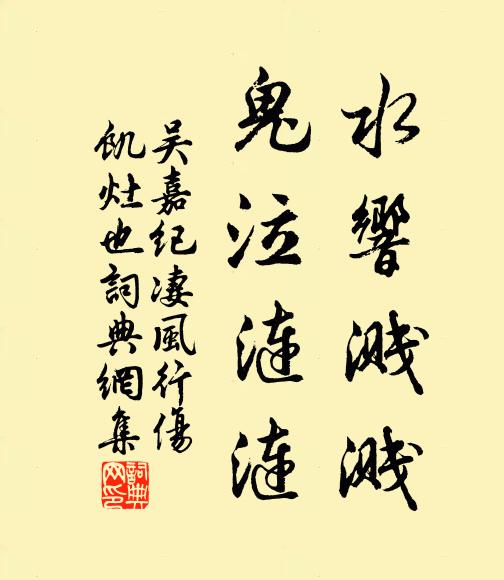 水響濺濺
鬼泣漣漣
吴嘉紀凄風行傷
飢灶也詞典網集
詞典網印